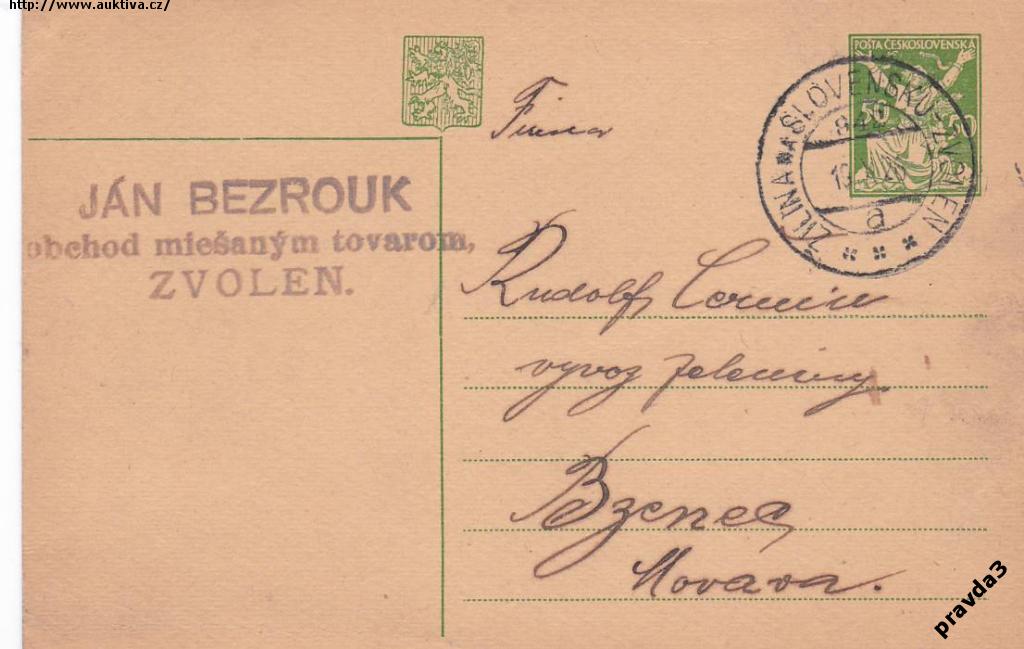 http://www.auktiva.cz/
POŠTA ČESKOSLOVENSKÁ
50
ŽILINA NA SLOVENSKU-ZVOLEN
a
Firma
JÁN BEZROUK
obchod miešaným tovarom,
ZVOLEN.
Rudolf
vyvoz zeleniny
Bzenec
Morava.
pravda3